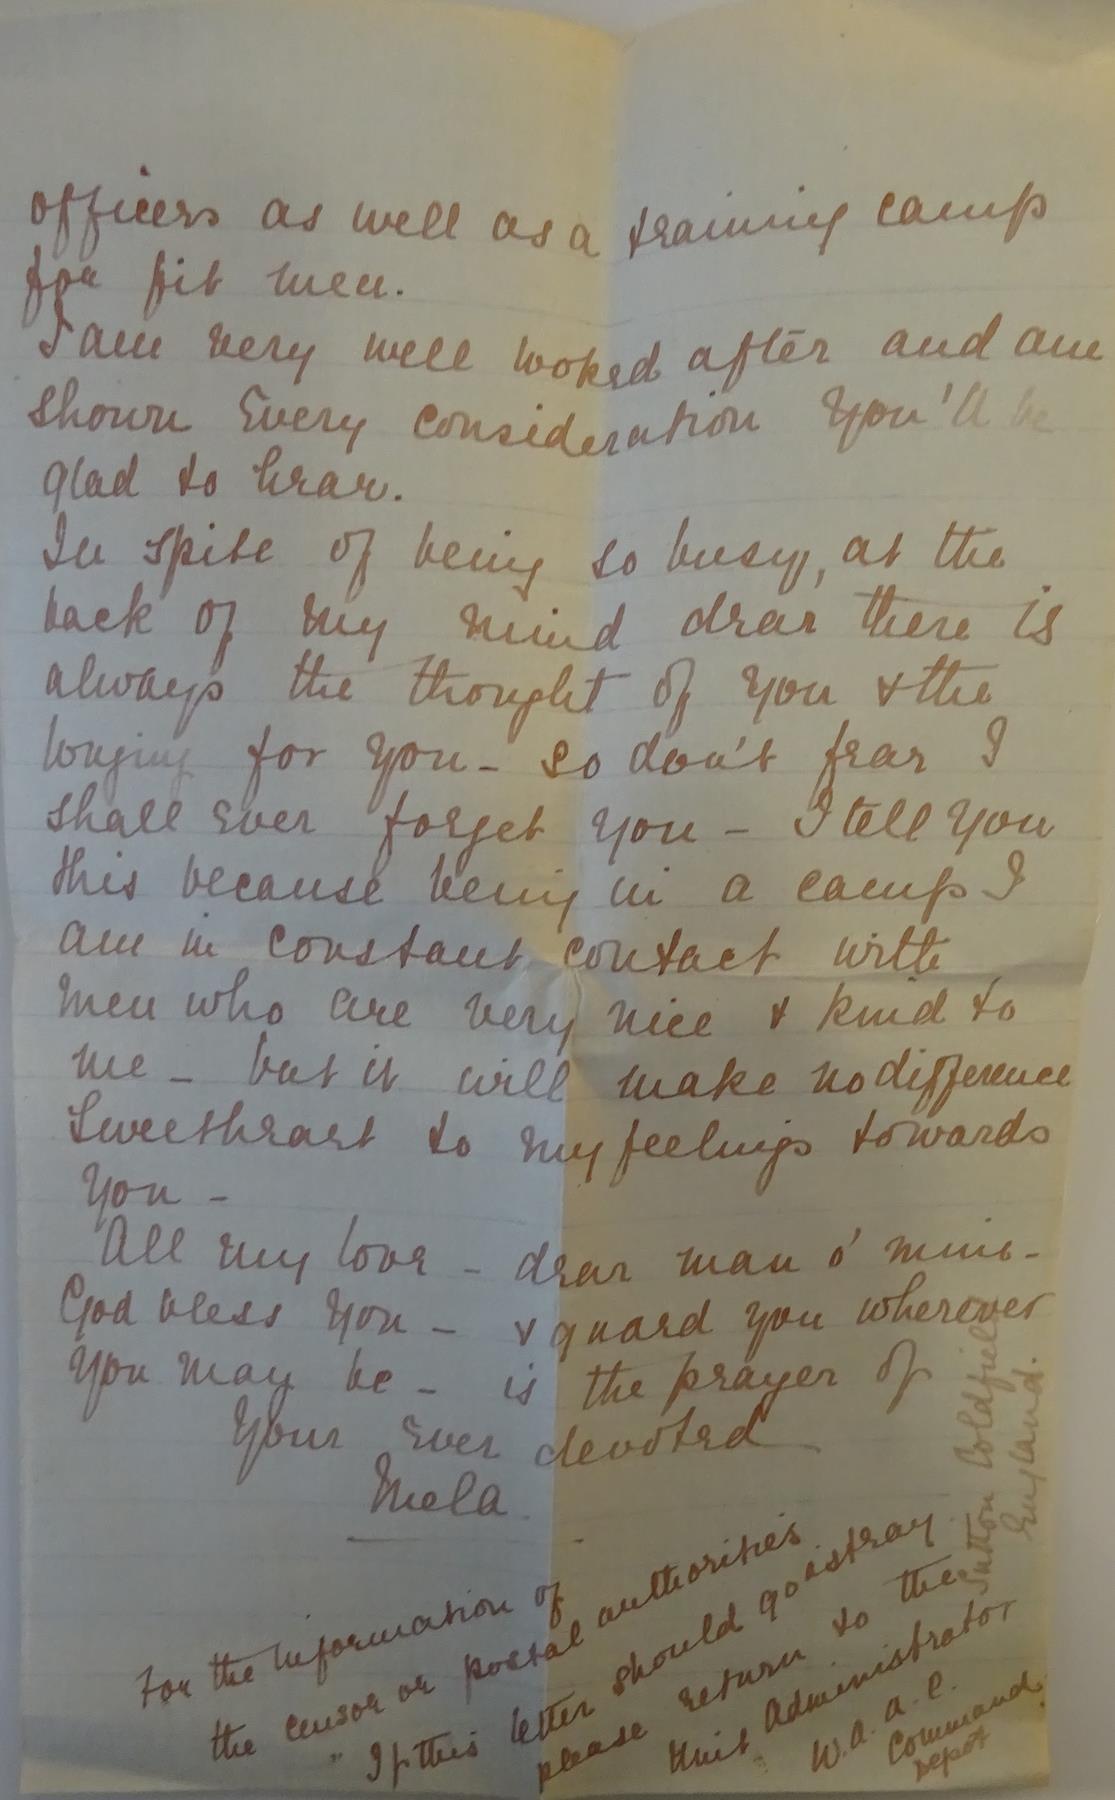 officers as well as a training camp
for fit men.
I am very well looked after and am
shown Every consideration you'll be
glad to hear.
In spite of being so busy, at the
back of my mind dear there is
always the thought of you & the
longing for you - so don't fear I
shall ever forget you - I tell you
this because being in a camp I
am in constant contact with
men who are very nice & kind to
me - but it will make no difference
Sweetheart to my feelings towards
you -
All my love - dear man o' mine -
God bless you - & guard you wherever
you may be - is the prayer of
Your Ever devoted
Mela.
For the information of
the censor or postal authorities
"If this letter should go astray
please return to the
Unit Administrator
W.A.A.C.
Command
Depot
Sutton Coldfield
England.